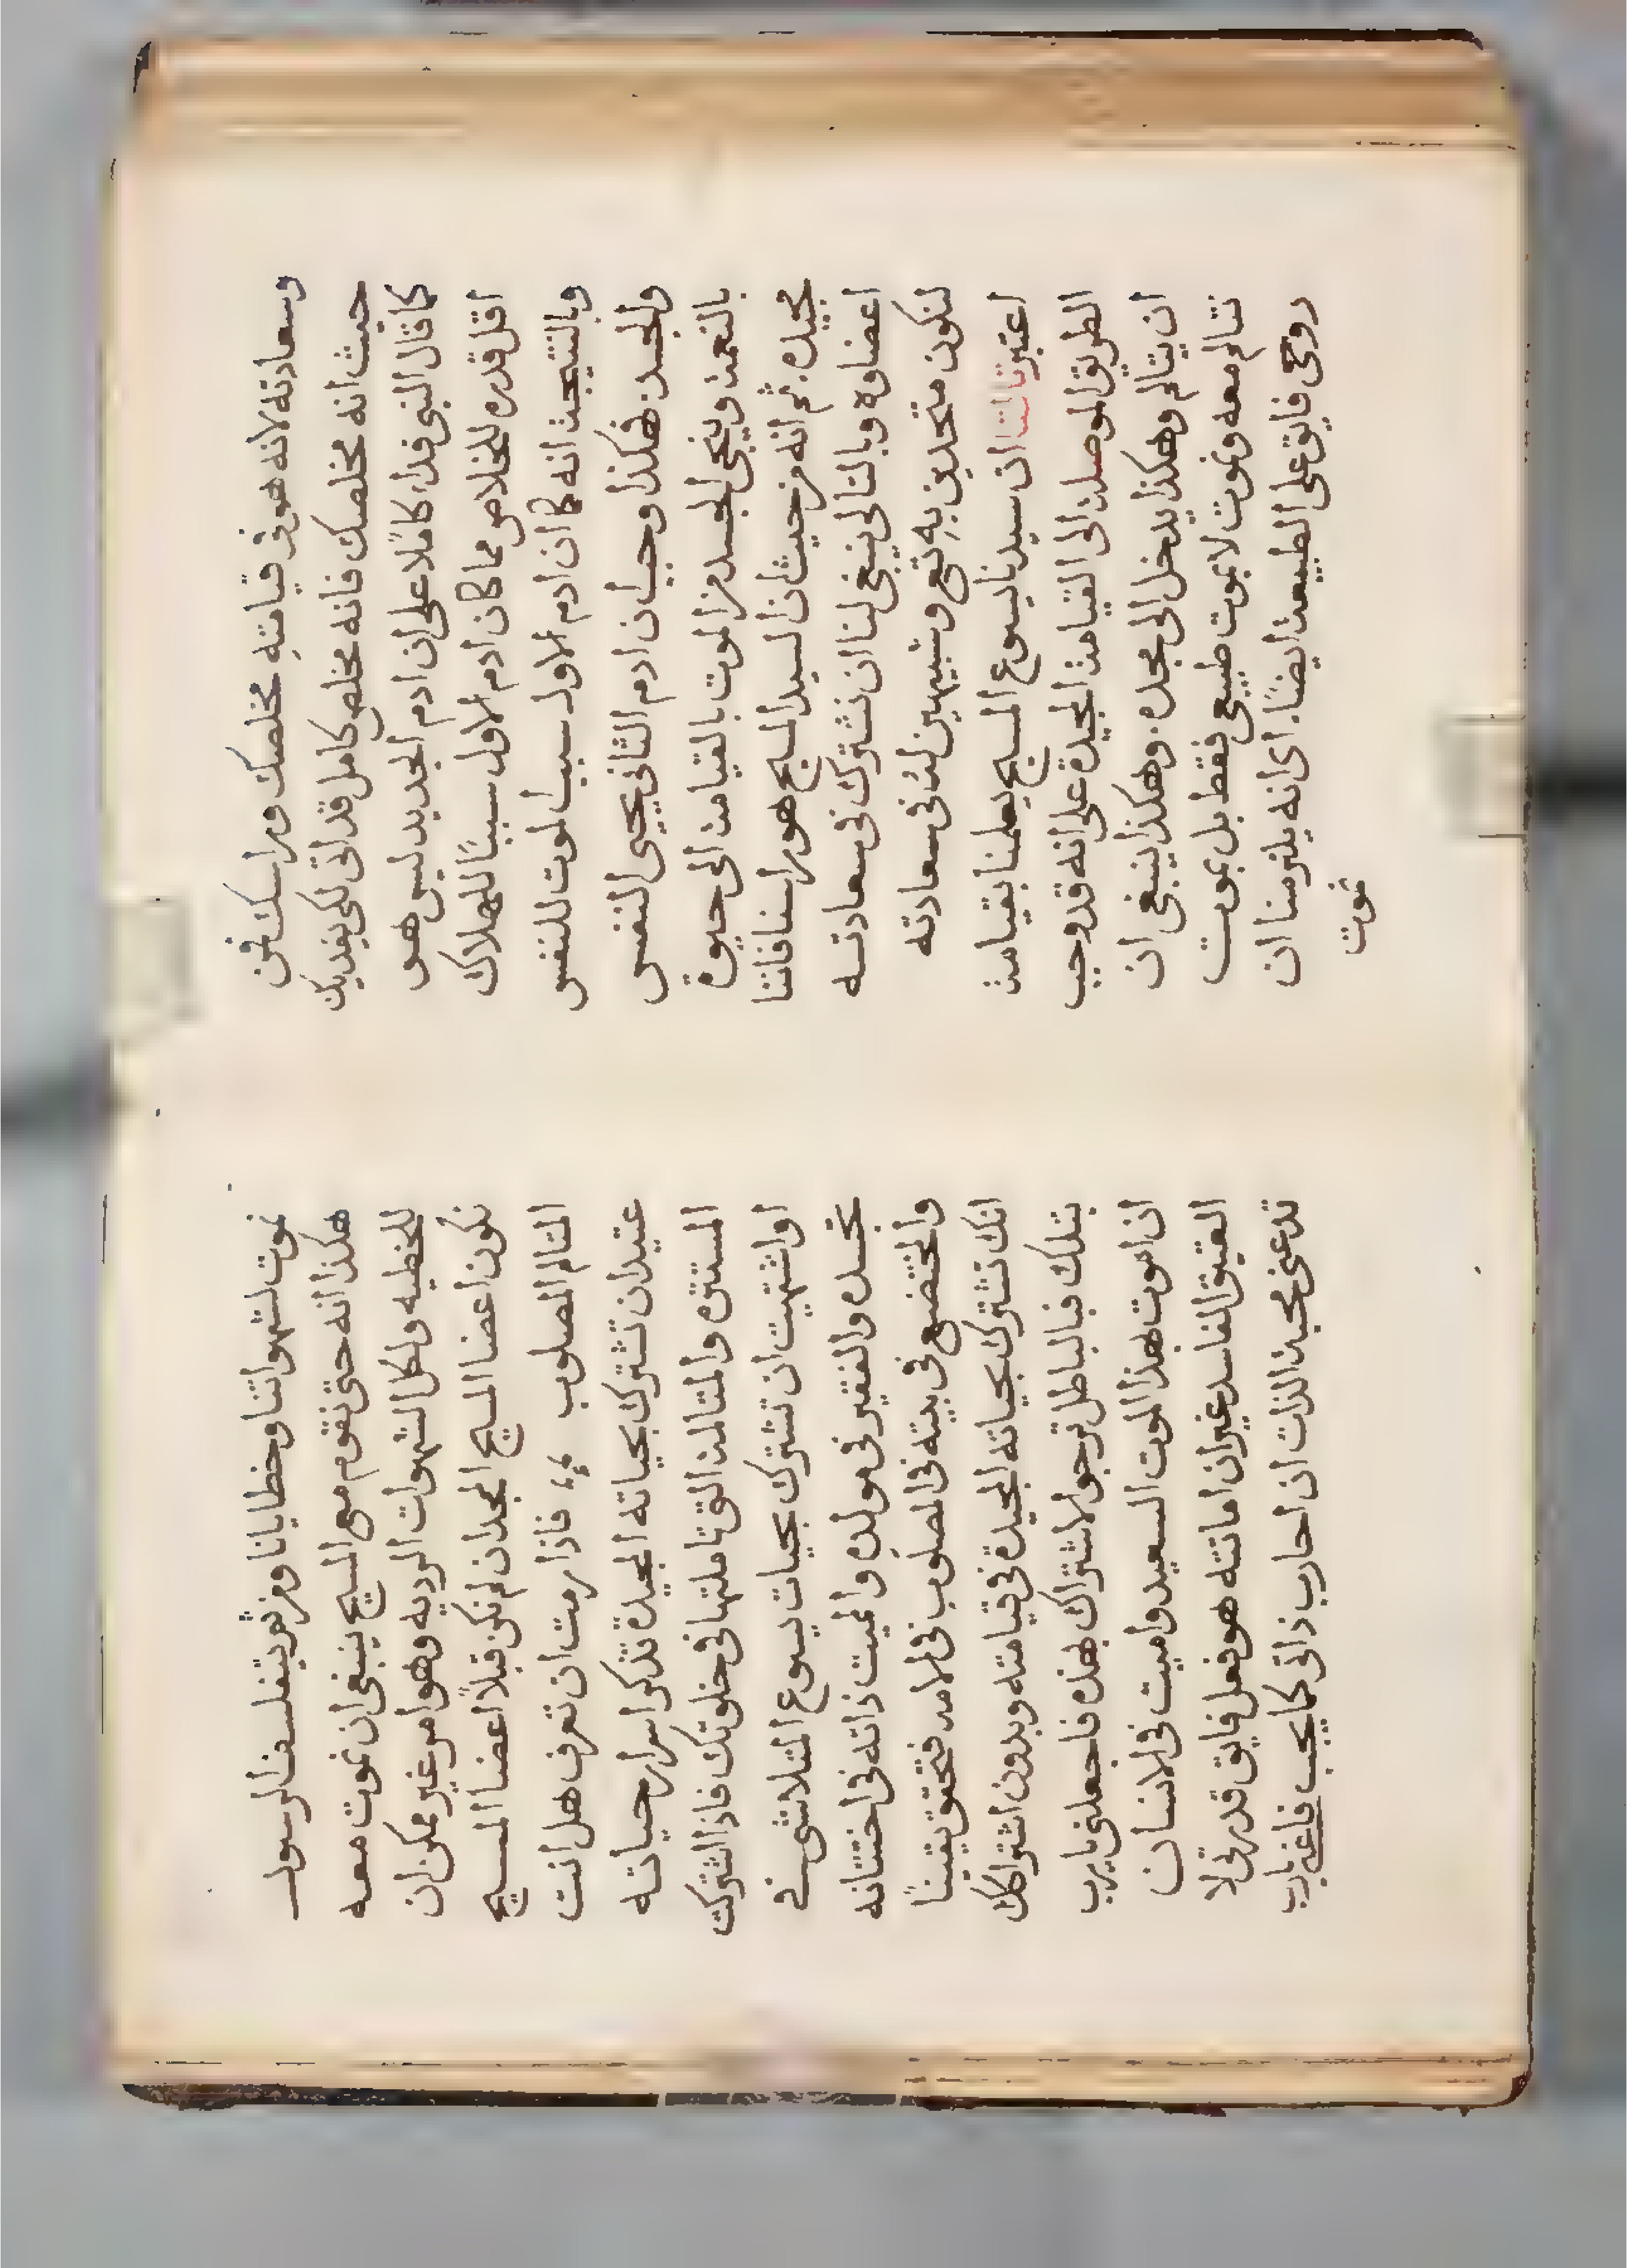 وسعادته لانه هو في قيامتهِ مخلصك وراسك فمن
حيث انه مخلصك فانه مخلص كامل قد اتى لكي يفديك
كما قال النبي فداء كاملًا على ان ادم الجديد ليس هو
اقل قدره للخلاص مما كان ادم الاول سببًا للهلاك
وبالنتيجة انه كما ان ادم الاول سبب الموت للنفس
والجسد فهكذا وجب ان ادم الثاني يحيي النفس
بالنعمة وينجي الجسد من الموت بالقيامة الى حيوة
مجيده. ثم انه من حيث ان السيد المسيح هو راسنا فاننا
اعضاوه وبالتالي ينبغي لنا ان نشترك في سعادته
لنكون متحدين بهِ تع وشبيهين لهُ في سعادته
اعتبر ثالثًا ان سيدنا يسوع المسيح يعلمنا بقيامة
الطريق الموصلة الى القيامة المجيدة على انه قد وجب
ان يتالم وهكذا يدخل الى مجده. وهكذا ينبغي ان
نتالم معه ونموت لا بموت طبيعي فقط بل بموت
روحي فايق على الطبيعة ايضًا. اي انه يلزمنا ان
نموت
نموت لشهواتنا وخطايانا ومن ثم يتفلسف الرسول
هكذا انه حتى نقوم مع المسيح ينبغي ان نموت معه
للخطيه ولكل الشهوات الرديه وهو امر غير ممكن ان
نكون اعضا المسيح الممجد ان لم نكن قبلًا اعضا المسيح
المتالم المصلوب فاذا رمت ان تعرف هل انت
عتيد ان تشترك بحياته المجيدة تذكر اسرار حياته
المستتره والمتالمة التي تاملتها في خلوتك فاذا اشتركت
او اشتهيت ان تشترك بحيات يسوع المتلاشي في
تجسده والفقير في مولدهِ والمميت ذاته في اختتانه
والمختضع في بيته في المصلوب في الامه فتحقق يقينًا
انك تشترك بحياته المجيدة في قيامته وبدون اشتراكك
بتلك فبالباطل ترجو الاشتراك بهذه فاجعلني يارب
ان اموت بهذا الموت السعيد واميت في الانسان
العتيق الفاسد غير ان اماتته هو فعل فايق قدرتي لا
تدعني محبة الذات ان احارب ذاتي كما يجب فاغر يارب